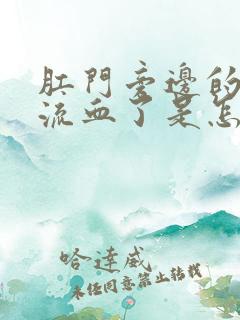 肛門旁邊的
流血了是怎
哈達威
未经同意禁止转载